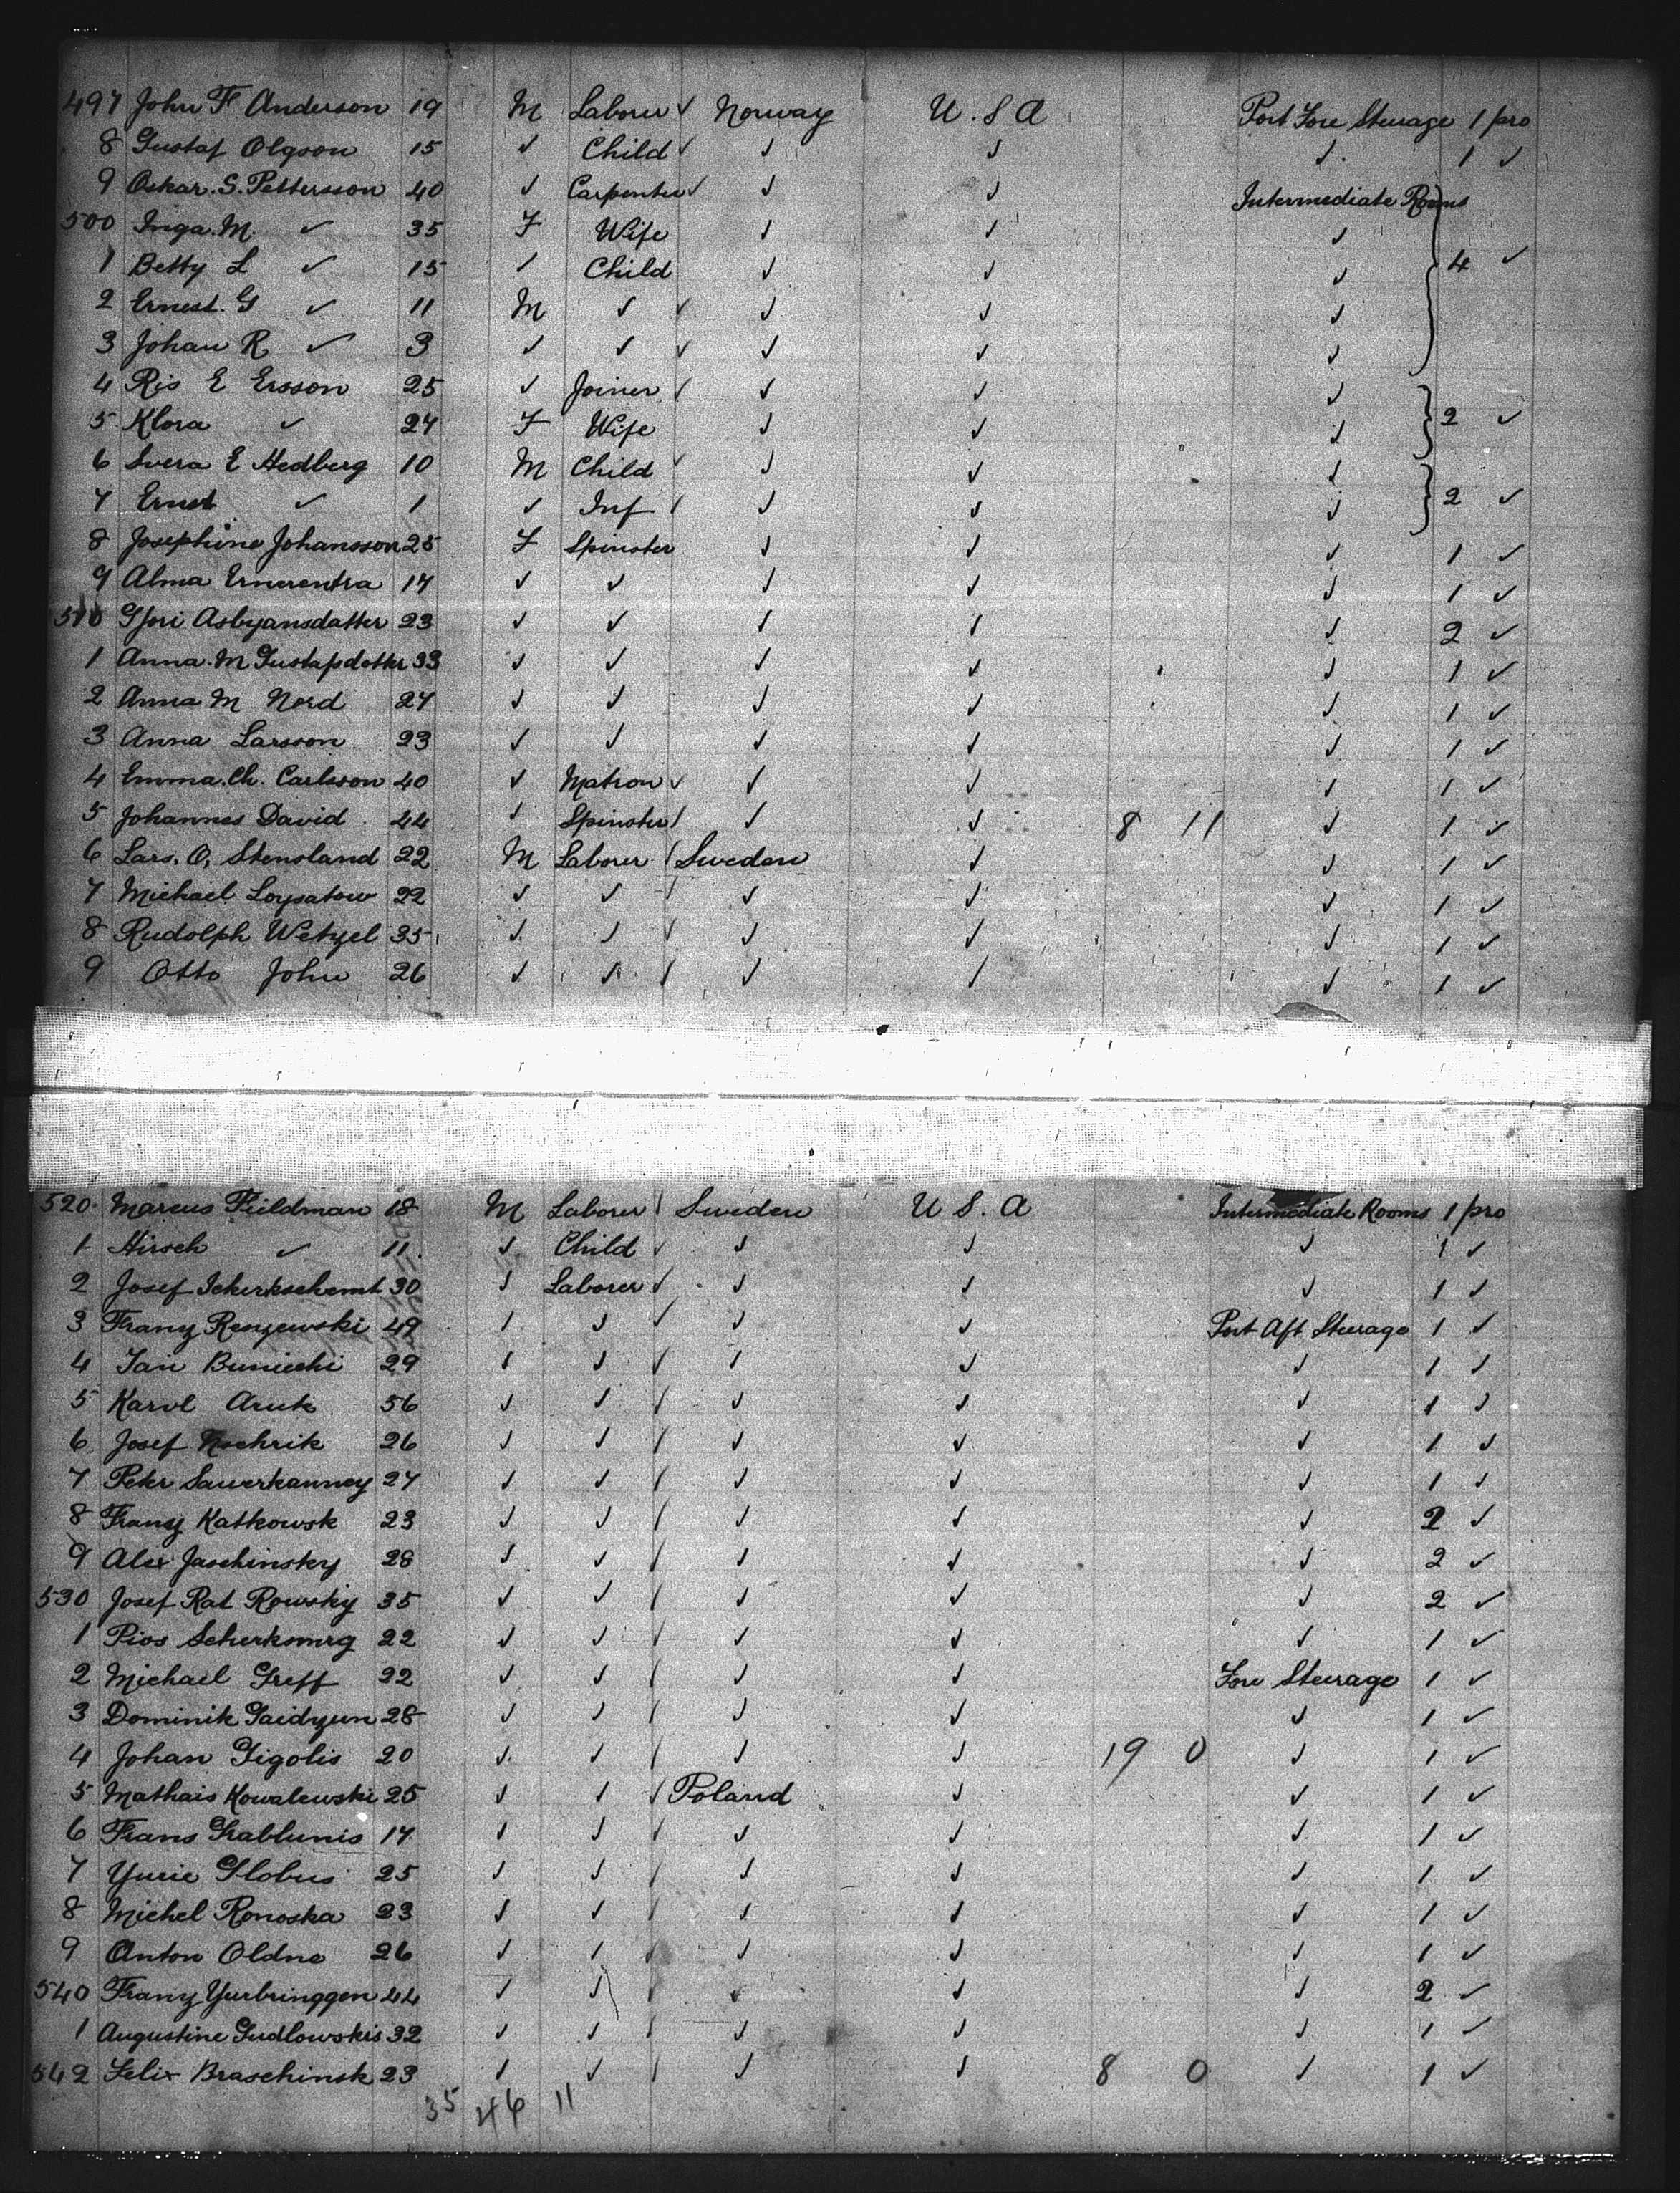 497 John F Anderson 19 M Laborer ✓ Norway U.S.A Port Fore Steerage 1 pro
8 Gustaf Olgson 15 ✓ Child ✓ ✓ ✓ ✓ 1 ✓
9 Oskar. S. Pettersson 40 ✓ Carpenter ✓ ✓ ✓ Intermediate Rooms
500 Inga. M. ✓ 35 F Wife ✓ ✓ ✓
1 Betty L ✓ 15 ✓ Child ✓ ✓ ✓ 4 ✓
2 Ernest. G ✓ 11 M ✓ ✓ ✓ ✓ ✓
3 Johan R ✓ 3 ✓ ✓ ✓ ✓ ✓ ✓
4 Ris E Ersson 25 ✓ Joiner ✓ ✓ ✓ ✓
5 Klora ✓ 24 F Wife ✓ ✓ ✓ 2 ✓
6 Svera E Hedberg 10 M Child ✓ ✓ ✓ ✓
7 Ernst ✓ 1 ✓ Inf ✓ ✓ ✓ ✓ 2 ✓
8 Josephine Johansson 25 F Spinster ✓ ✓ ✓ 1 ✓
9 Alma 17 ✓ ✓ ✓ ✓ ✓ 1 ✓
510 Asbyansdatter 23 ✓ ✓ ✓ ✓ ✓ 2 ✓
1 Anna. M Gustafdotter 33 ✓ ✓ ✓ ✓ ✓ 1 ✓
2 Anna M Nord 24 ✓ ✓ ✓ ✓ ✓ 1 ✓
3 Anna Larsson 23 ✓ ✓ ✓ ✓ ✓ 1 ✓
4 Emma. Ch. Carlsson 40 ✓ Matron ✓ ✓ ✓ ✓ 1 ✓
5 Johannes David 44 ✓ Spinster ✓ ✓ ✓ 8 11 ✓ 1 ✓
6 Lars. O. Stensland 22 M Laborer ✓ Sweden ✓ ✓ 1 ✓
7 Michael Loysatow 22 ✓ ✓ ✓ ✓ ✓ ✓ 1 ✓
8 Rudolph Wetzel 35 ✓ ✓ ✓ ✓ ✓ ✓ 1 ✓
9 Otto John 26 ✓ ✓ ✓ ✓ ✓ ✓ 1 ✓
520 Marcus Fieldman 18 M Laborer ✓ Sweden U S. A Intermediate Rooms 1 pro
1 Hirsch ✓ 11 ✓ Child ✓ ✓ ✓ ✓ 1 ✓
2 Josef 30 ✓ Laborer ✓ ✓ ✓ ✓ 1 ✓
3 Franz Renzewski 49 ✓ ✓ ✓ ✓ ✓ Port Aft Steerage 1 ✓
4 Jan Buniechi 29 ✓ ✓ ✓ ✓ ✓ ✓ 1 ✓
5 Karol Aruk 56 ✓ ✓ ✓ ✓ ✓ ✓ 1 ✓
6 Josef Nschrik 26 ✓ ✓ ✓ ✓ ✓ ✓ 1 ✓
7 Peter Sawerkanney 27 ✓ ✓ ✓ ✓ ✓ ✓ 1 ✓
8 Franz Katkowsk 23 ✓ ✓ ✓ ✓ ✓ ✓ 2 ✓
9 Alex Jaschinsky 28 ✓ ✓ ✓ ✓ ✓ ✓ 2 ✓
530 Josef Rat Rowsky 35 ✓ ✓ ✓ ✓ ✓ ✓ 2 ✓
1 Pios 22 ✓ ✓ ✓ ✓ ✓ ✓ 1 ✓
2 Michael Greff 22 ✓ ✓ ✓ ✓ ✓ Fore Steerage 1 ✓
3 Dominik Gaidzun 28 ✓ ✓ ✓ ✓ ✓ ✓ 1 ✓
4 Johan Gigolis 20 ✓ ✓ ✓ ✓ ✓ 19 0 ✓ 1 ✓
5 Mathais Kowalewski 25 ✓ ✓ ✓ Poland ✓ ✓ 1 ✓
6 Frans Grablunis 17 ✓ ✓ ✓ ✓ ✓ ✓ 1 ✓
7 Yurie Globus 25 ✓ ✓ ✓ ✓ ✓ ✓ 1 ✓
8 Michel Ronoska 23 ✓ ✓ ✓ ✓ ✓ ✓ 1 ✓
9 Anton Oldne 26 ✓ ✓ ✓ ✓ ✓ ✓ 1 ✓
540 Franz Yurbringgen 44 ✓ ✓ ✓ ✓ ✓ ✓ 2 ✓
1 Augustine Gudlowskis 32 ✓ ✓ ✓ ✓ ✓ ✓ 1 ✓
542 Felix Braschinsk 23 ✓ ✓ ✓ ✓ ✓ 8 0 ✓ 1 ✓
35 46 11